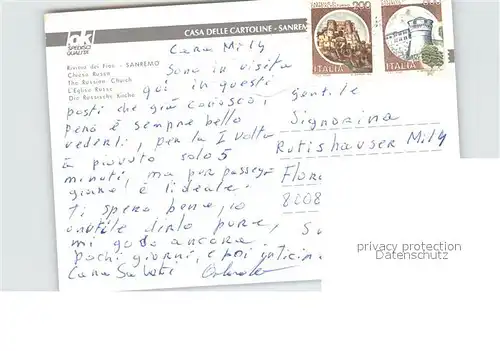 CASA DELLE CARTOLINE - SANREM
ok
SPEDISCI
QUALITA'
Riviera dei Fiori - SANREMO
Chiesa Russa
The Russian Church
L'Eglise Russe
Die Russische Kirche
200
ITALIA
ITALIA
Cara Mily
Sono in visita
qui in questi
posti che già conoscevo,
però è sempre bello
vederli, per la I volta
è piovuto solo 5
minuti, ma per passeg-
giare è l'ideale.
Ti spero bene, io
inutile dirlo pure,
mi godo ancora
pochi giorni, e poi
Cara Saluti
Gentile
Signorina
Rutishauser Mily
Flor
8008
S
privacy protection
Datenschutz